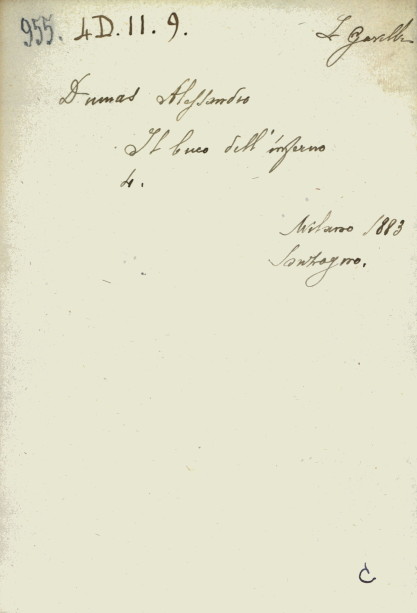 955. 4D.11.9.
Dumas Alessandro
Il buco dell'inferno
4.
Milano 1883
Sonzogno.
C